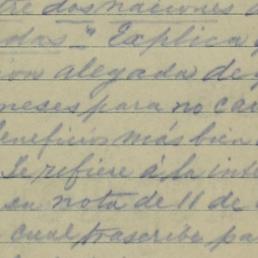 tre dos naciones
das." Explica
ion alegada de
meses para no ca
eneficios más bien
Se refiere á la inte
en nota de 11 de
cual trascribe pa